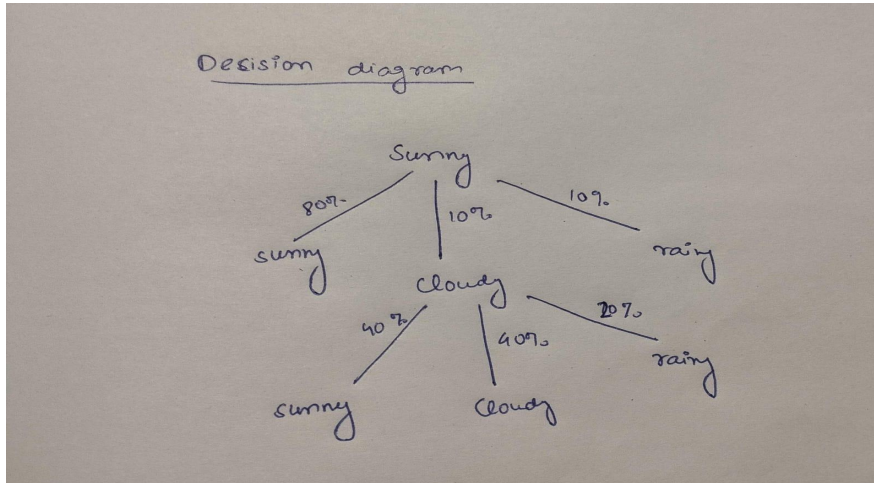 Desision diagram
Sunny
80% 10% 10%
sunny cloudy rainy
40% 40% 20%
sunny cloudy rainy